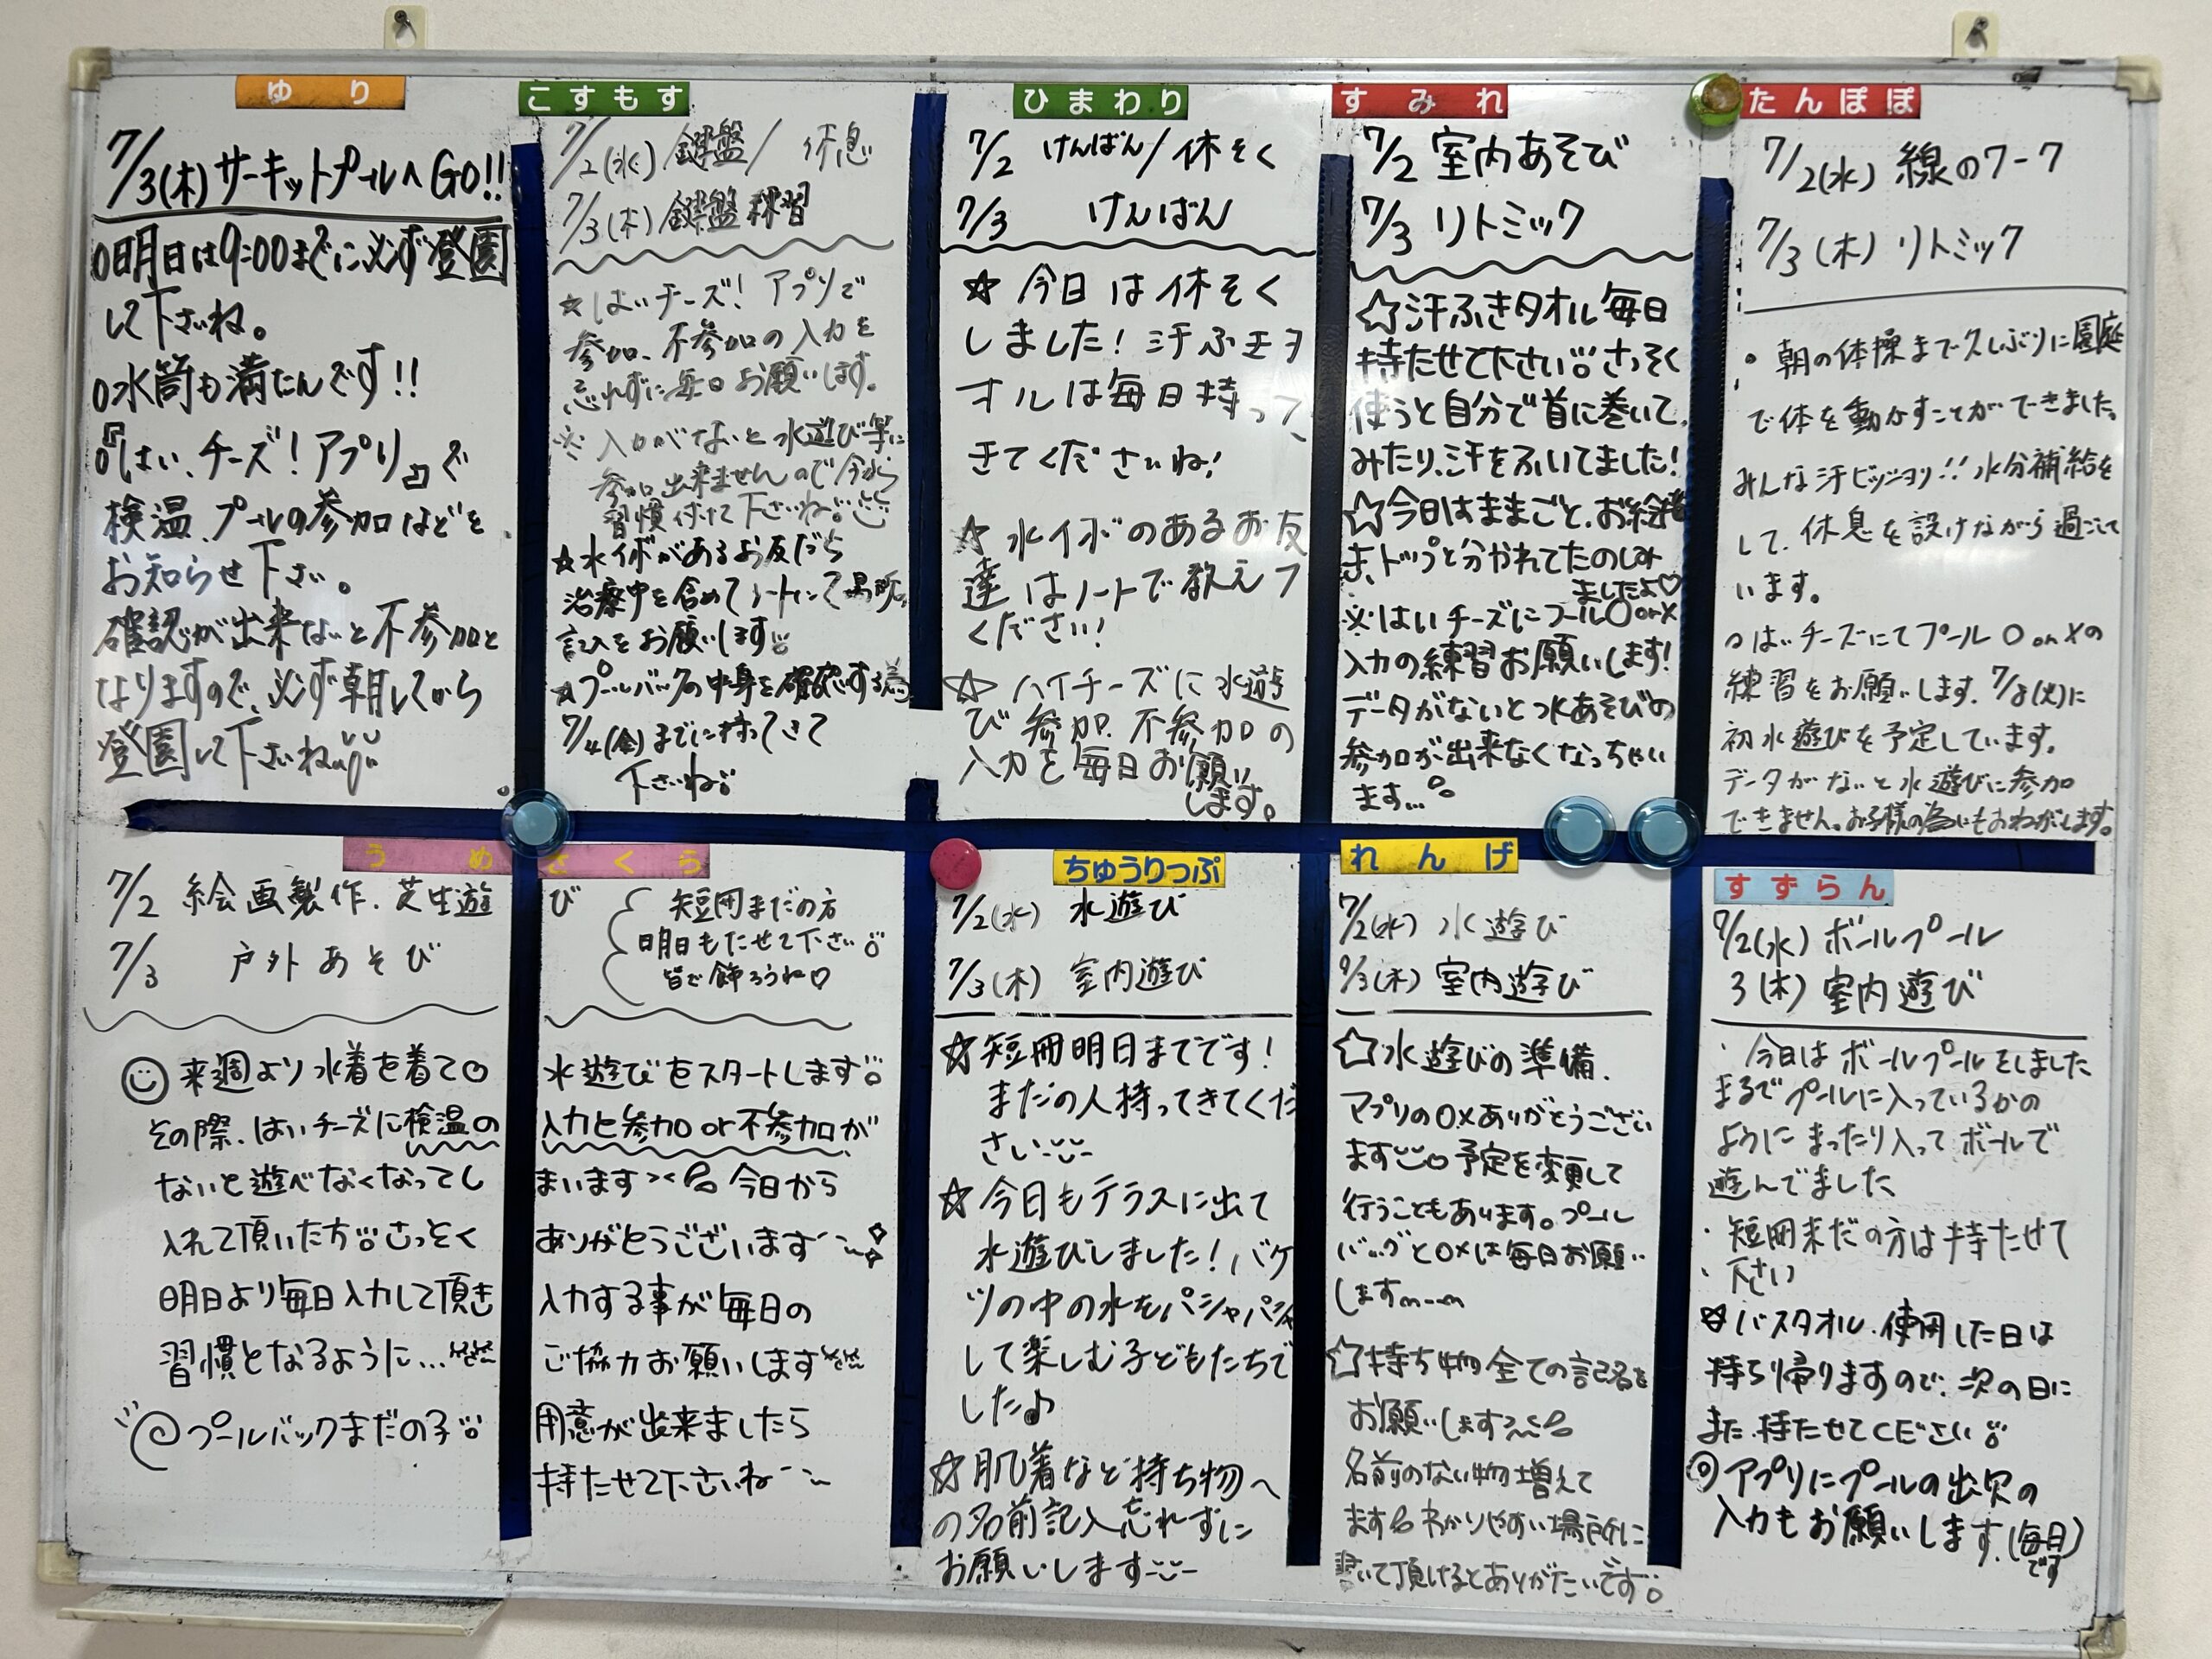 ゆり
7/3(木)サーキットプールへGO!!
○明日は9:00までに必ず登園
して下さいね。
○水筒も満たんです!!
『はい、チーズ!アプリ』で
検温、プールの参加などを
お知らせ下さい。
確認が出来ないと不参加と
なりますので、必ず朝してから
登園して下さいね
こすもす
7/2(水)鍵盤/休息
7/3(木)鍵盤練習
☆はいチーズ!アプリで
参加、不参加の入力を
忘れずに毎日お願いします。
※入力がないと水遊び等に
参加出来ませんので今から
習慣付けて下さいね
☆水イボがあるお友だち
治療中を含めてノートにて
記入をお願いします
☆プールバックの中身を確認する為
7/4(金)までに持ってきて
下さいね
ひまわり
7/2 けんばん/休そく
7/3 けんばん
☆今日は休そく
しました!汗ふきタ
オルは毎日持って
きてくださいね!
☆水イボのあるお友
達はノートで教えて
ください!
☆ハイチーズに水遊
び参加、不参加の
入力を毎日お願い
します。
すみれ
7/2 室内あそび
7/3 リトミック
☆汗ふきタオル毎日
持たせて下さい さっそく
使うと自分で首に巻いて
みたり、汗をふいてました!
☆今日はままごと、お絵描
き、トップと分かれてたのしみ
ましたよ♡
※はいチーズにプール○or×
入力の練習お願いします!
データがないと水あそびの
参加が出来なくなっちゃい
ます…
たんぽぽ
7/2(水) 線のワーク
7/3(木) リトミック
○朝の体操まで久しぶりに園庭
で体を動かすことができました。
みんな汗ビッショリ!!水分補給を
して、休息を設けながら過ごして
います。
○はいチーズにてプール○or×の
練習をお願いします。7/8(火)に
初水遊びを予定しています。
データがないと水遊びに参加
できません。お子様の為にもおねがします。
うめ さくら
7/2 絵画製作、芝生遊び
7/3 戸外あそび
短冊まだの方
明日もたせて下さい
皆で飾ろうね♡
来週より水着を着て 水遊びをスタートします
その際、はいチーズに検温の入力と参加or不参加が
ないと遊べなくなってしまいます>< 今日から
入れて頂いた方 さっそくありがとうございます
明日より毎日入力して頂き 入力する事が毎日の
習慣となるように… ご協力お願いします
プールバックまだの子 用意が出来ましたら
持たせて下さいね
ちゅうりっぷ
7/2(水) 水遊び
7/3(木) 室内遊び
☆短冊明日までです!
まだの人持ってきてくだ
さい
☆今日もテラスに出て
水遊びしました!バケ
ツの中の水をパシャパシャ
して楽しむ子どもたちで
した♪
☆肌着など持ち物へ
の名前記入忘れずに
お願いします
れんげ
7/2(水) 水遊び
7/3(木) 室内遊び
☆水遊びの準備、
アプリの○×ありがとうござい
ます 予定を変更して
行うこともあります。プール
バッグと○×は毎日お願い
しますm--m
☆持ち物全ての記名を
お願いします
名前のない物増えて
ます わかりやすい場所に
書いて頂けるとありがたいです。
すずらん
7/2(水) ボールプール
3(木) 室内遊び
・今日はボールプールをしました
まるでプールに入っているかの
ようにまったり入ってボールで
遊んでました
・短冊未だの方は持たせて
・下さい
☆バスタオル、使用した日は
持ち帰りますので、次の日に
また、持たせてください
◎アプリにプールの出欠の
入力もお願いします。(毎日
です)